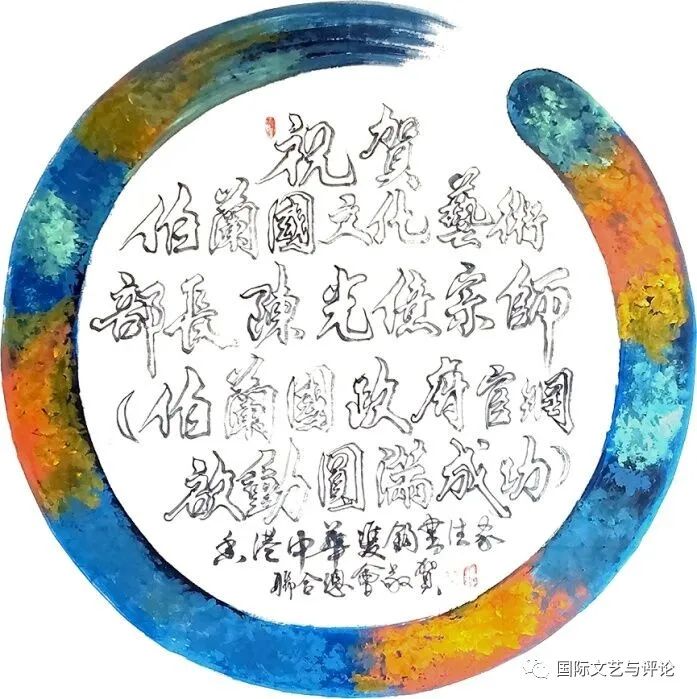 祝賀
伯蘭國文化藝術
部長陳光億宗師
（伯蘭國政府官網
啟動圓滿成功）
香港中華雙鉤書法家
聯合總會敬賀
国际文艺与评论